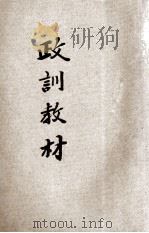 政訓教材
www.mtoou.info